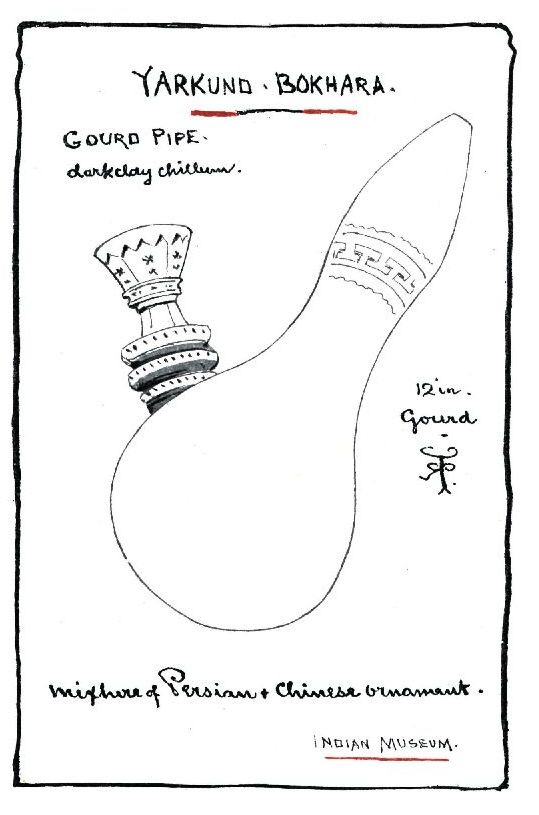 YARKUND . BOKHARA.
GOURD PIPE.
dark clay chillum.
12 in.
Gourd
mixture of Persian + Chinese ornament.
INDIAN MUSEUM.